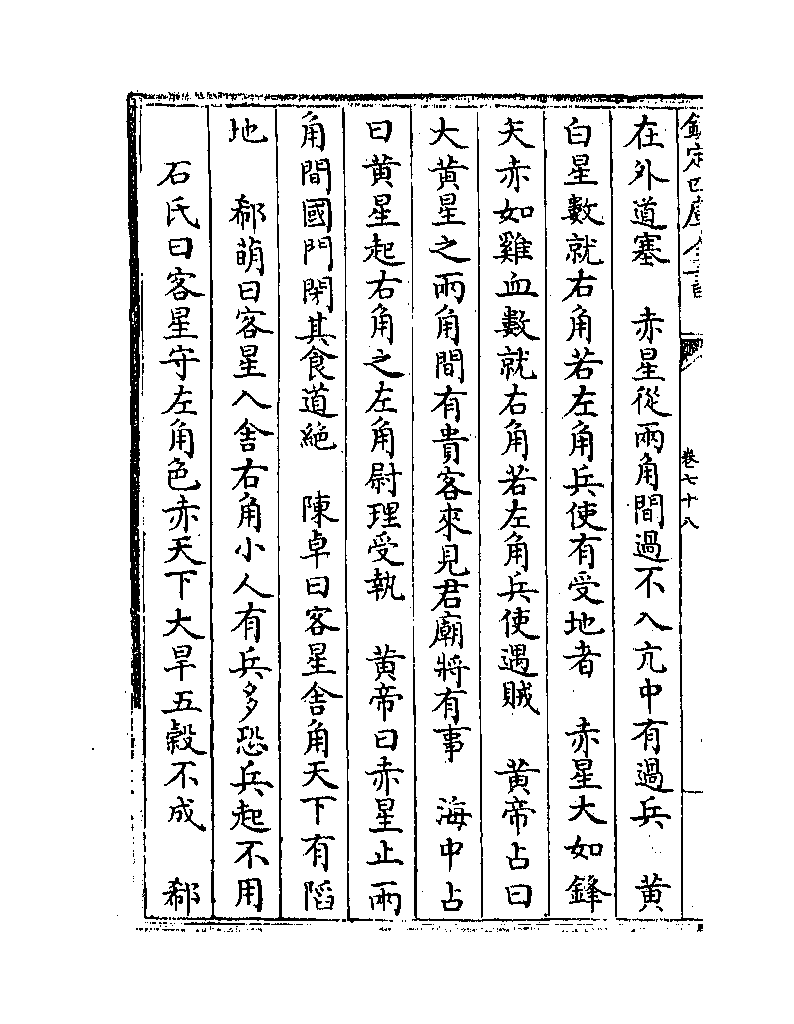 欽定四庫全書
卷七十八
在外道塞　赤星從兩角間過不入亢中有過兵　黄
白星數就右角若左角兵使有受地者　赤星大如鋒
矢赤如雞血數就右角若左角兵使遇賊　黄帝占曰
大黄星之兩角間有貴客來見君廟將有事　海中占
曰黄星起右角之左角尉理受執　黄帝曰赤星止兩
角間國門閉其食道絶　陳卓曰客星舍角天下有謟
地　郗萌曰客星入舍右角小人有兵多恐兵起不用
石氏曰客星守左角色赤天下大旱五榖不成　郗